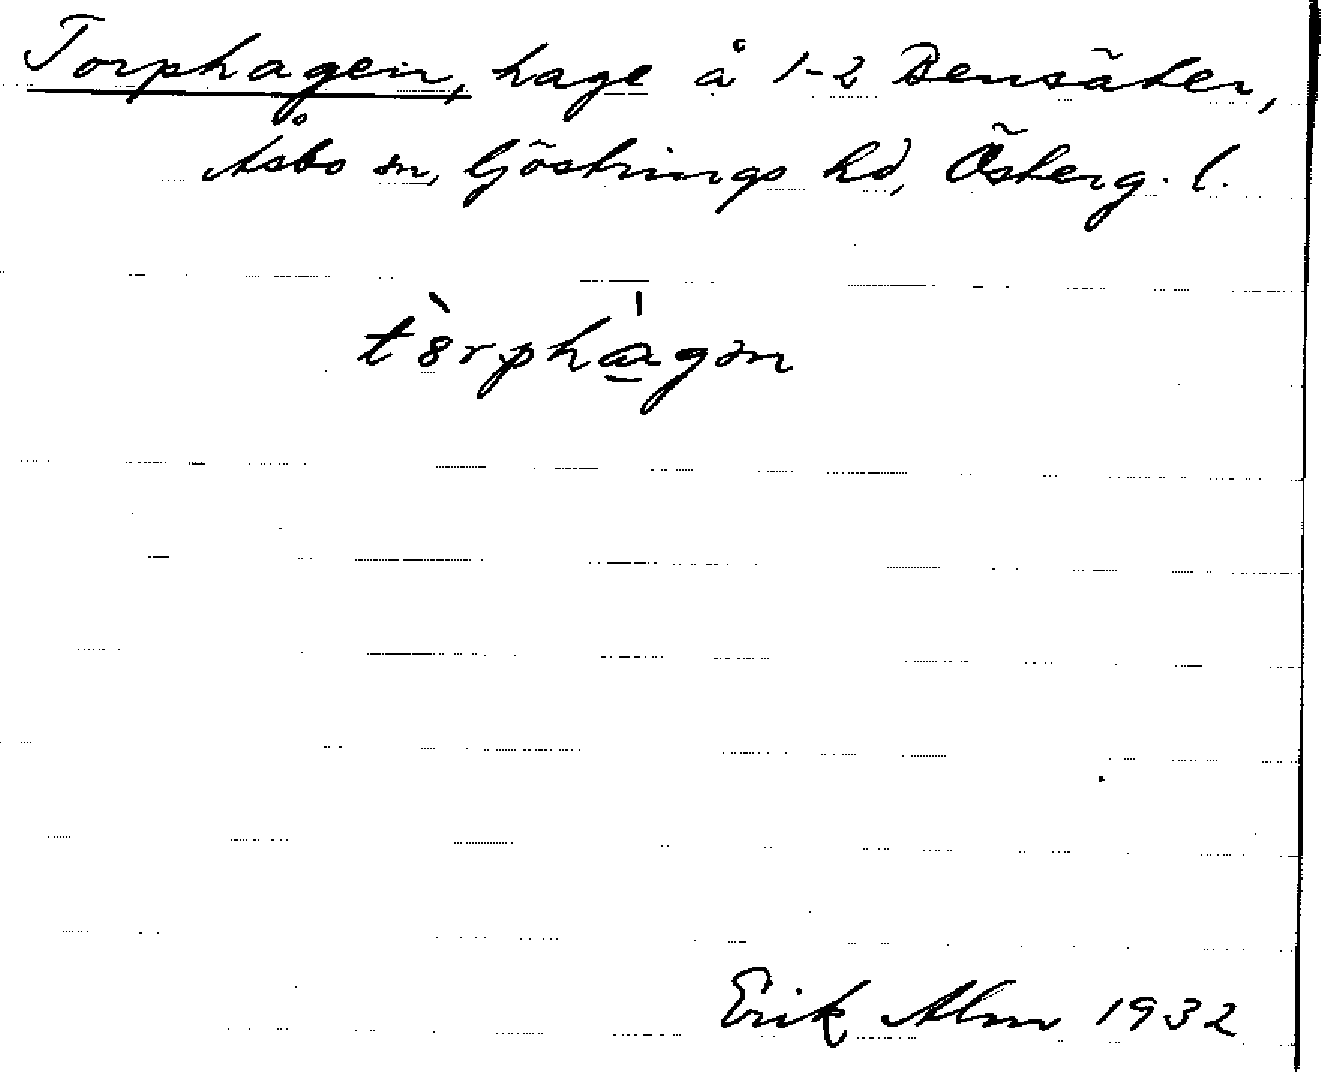 Torphagen, hage å 1-2 Bensäter,
Åsbo sn, Göstrings hd, Österg. l.
Erik Alm 1932